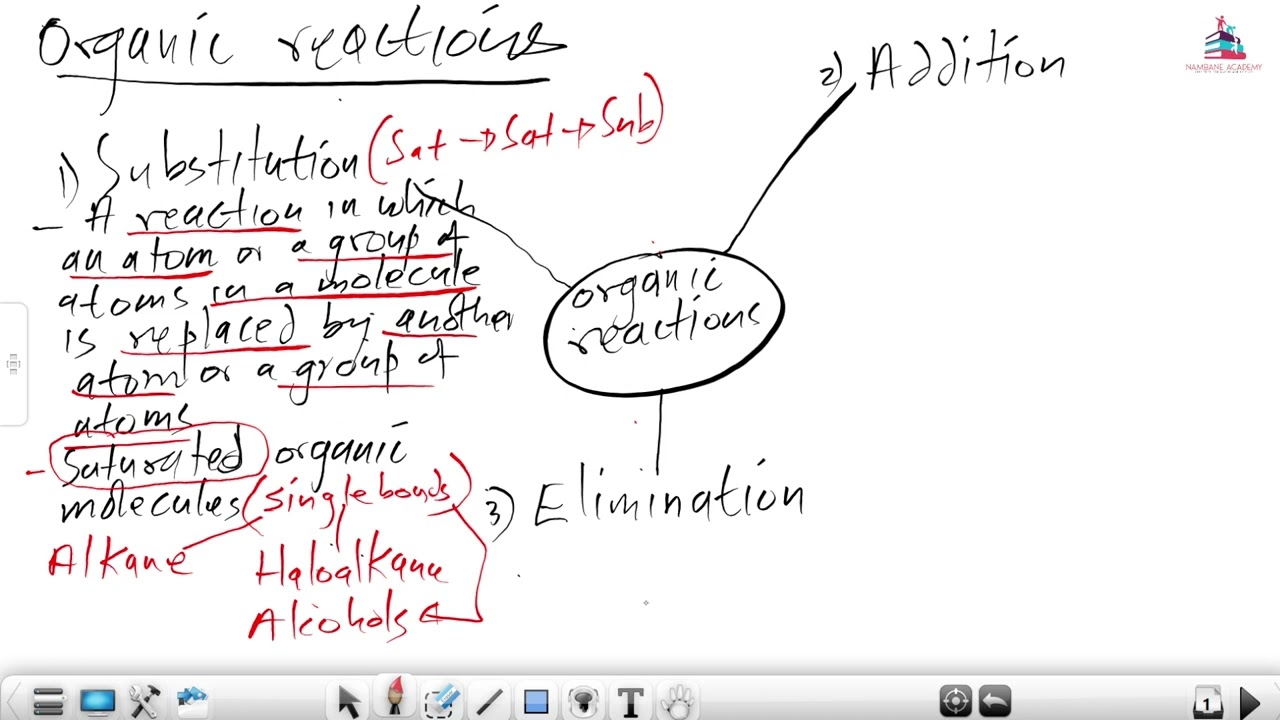 Organic reactions
1) Substitution (Sat → Sat → Sub)
- A reaction in which
an atom or a group of
atoms in a molecule
is replaced by another
atom or a group of
atoms
- Saturated organic
molecules (single bonds)
Alkane
Haloalkane
Alcohols
organic
reactions
2) Addition
3) Elimination
NAMBANE ACADEMY
1
T